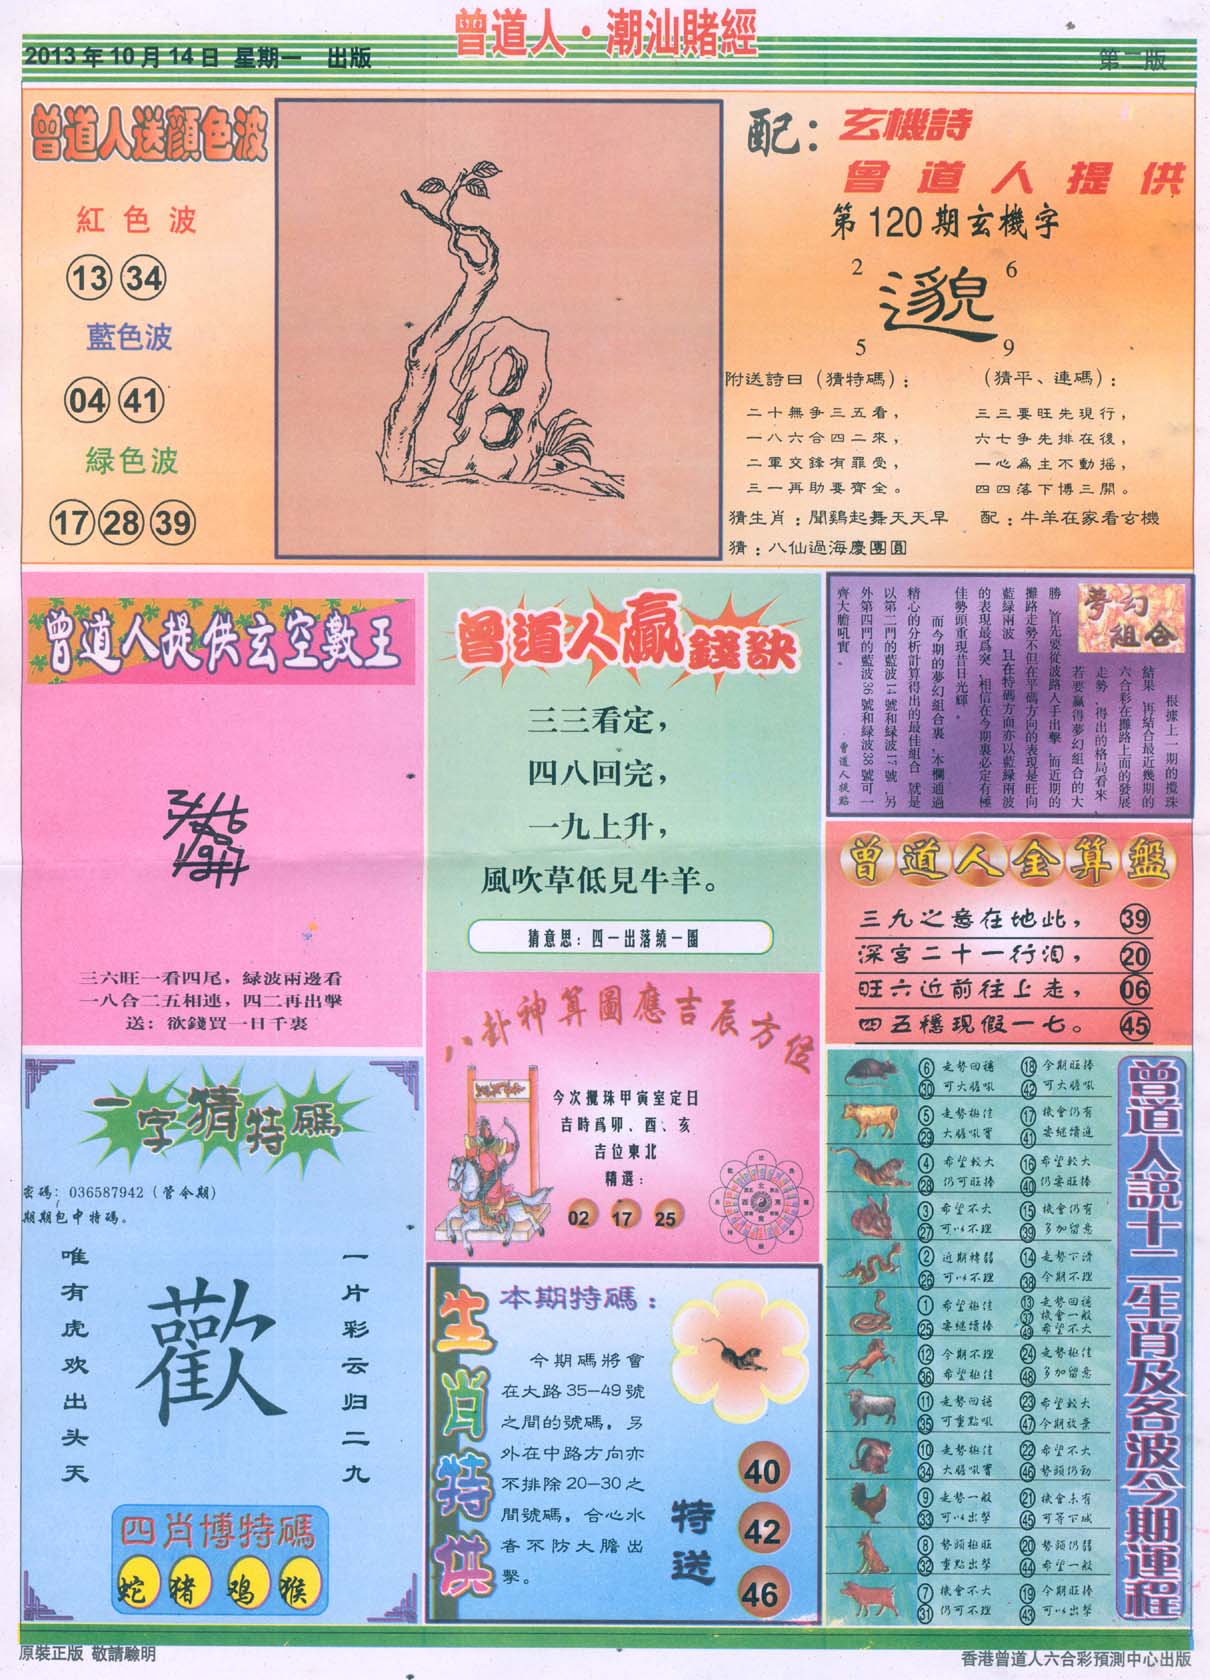 曾道人·潮汕賭經
2013年10月14日 星期一 出版
第二版
曾道人送顔色波
紅色波
13 34
藍色波
04 41
緑色波
17 28 39
配:玄機詩
曾道人提供
第120期玄機字
2 6
邈
5 9
附送詩曰(猜特碼):
二十無爭三五看,
一八六合四二來,
二軍交鋒有罪受,
三一再助要齊全。
(猜平、連碼):
三三要旺先現行,
六七爭先排在後,
一心爲主不動摇,
四四落下博三開。
猜生肖:聞鷄起舞天天早 配:牛羊在家看玄機
猜:八仙過海慶團圓
曾道人提供玄空數王
三六旺一看四尾,緑波兩邊看
一八合二五相連,四二再出擊
送:欲錢買一日千裏
曾道人贏錢訣
三三看定,
四八回完,
一九上升,
風吹草低見牛羊。
猜意思:四一出落繞一圈
夢幻組合
根據上一期的攪珠
結果,再結合最近幾期的
六合彩在攤路上面的發展
走勢,得出的格局看來,
若要贏得夢幻組合的大
勝,首先要從波路入手出擊,而近期的
攤路走勢不但在平碼方向的表現是旺向
藍緑兩波,且在特碼方面亦以藍緑兩波
的表現最爲突,相信在今期裏必定有極
佳勢頭重現昔日光輝。
而今期的夢幻組合裏,本欄通過
精心的分析計算得出的最佳組合,就是
以第二門的藍波14號和緑波17號,另
外第四門的藍波36號和緑波38號可一
齊大膽吼實。
曾道人提點
曾道人金算盤
三九之意在地此, 39
深宮二十一行泪, 20
旺六近前往上走, 06
四五穩現假一七。 45
一字猜特碼
密碼:036587942(管今期)
期期包中特碼。
一片彩云归二九
歡
唯有虎欢出头天
四肖博特碼
蛇 猪 鸡 猴
八卦神算圖應吉辰方位
今次攪珠甲寅室定日
吉時爲卯、酉、亥
吉位東北
精選:
02 17 25
生肖特供
本期特碼:
今期碼將會
在大路35—49號
之間的號碼,另
外在中路方向亦
不排除20—30之
間號碼,合心水
者不防大膽出
擊。
特送
40
42
46
曾道人説十二生肖及各波今期運程
6 走勢回穩 18 今期旺捧
30 可大膽吼 42 可大膽吼
5 走勢極佳 17 機會仍有
29 大膽吼實 41 要繼續追
4 希望較大 16 希望較大
28 仍可旺捧 40 仍要旺捧
3 希望不大 15 機會仍有
27 可以不理 39 多加留意
2 近期轉弱 14 走勢下滑
26 可以不理 38 今期不理
1 希望極佳 13 走勢回穩
37 機會一般
25 要繼續捧 49 希望不大
12 今期不理 24 走勢極佳
36 希望極佳 48 多加留意
11 走勢回穩 23 希望較大
35 可重點吼 47 今期放棄
10 走勢極佳 22 希望不大
34 大膽吼實 46 勢頭仍勁
9 走勢一般 21 機會未有
33 可以出擊 45 可等下城
8 勢頭極旺 20 勢頭仍弱
32 重點出擊 44 希望一般
7 機會不大 19 今期旺捧
31 仍可不理 43 可以出擊
原裝正版 敬請驗明
香港曾道人六合彩預測中心出版